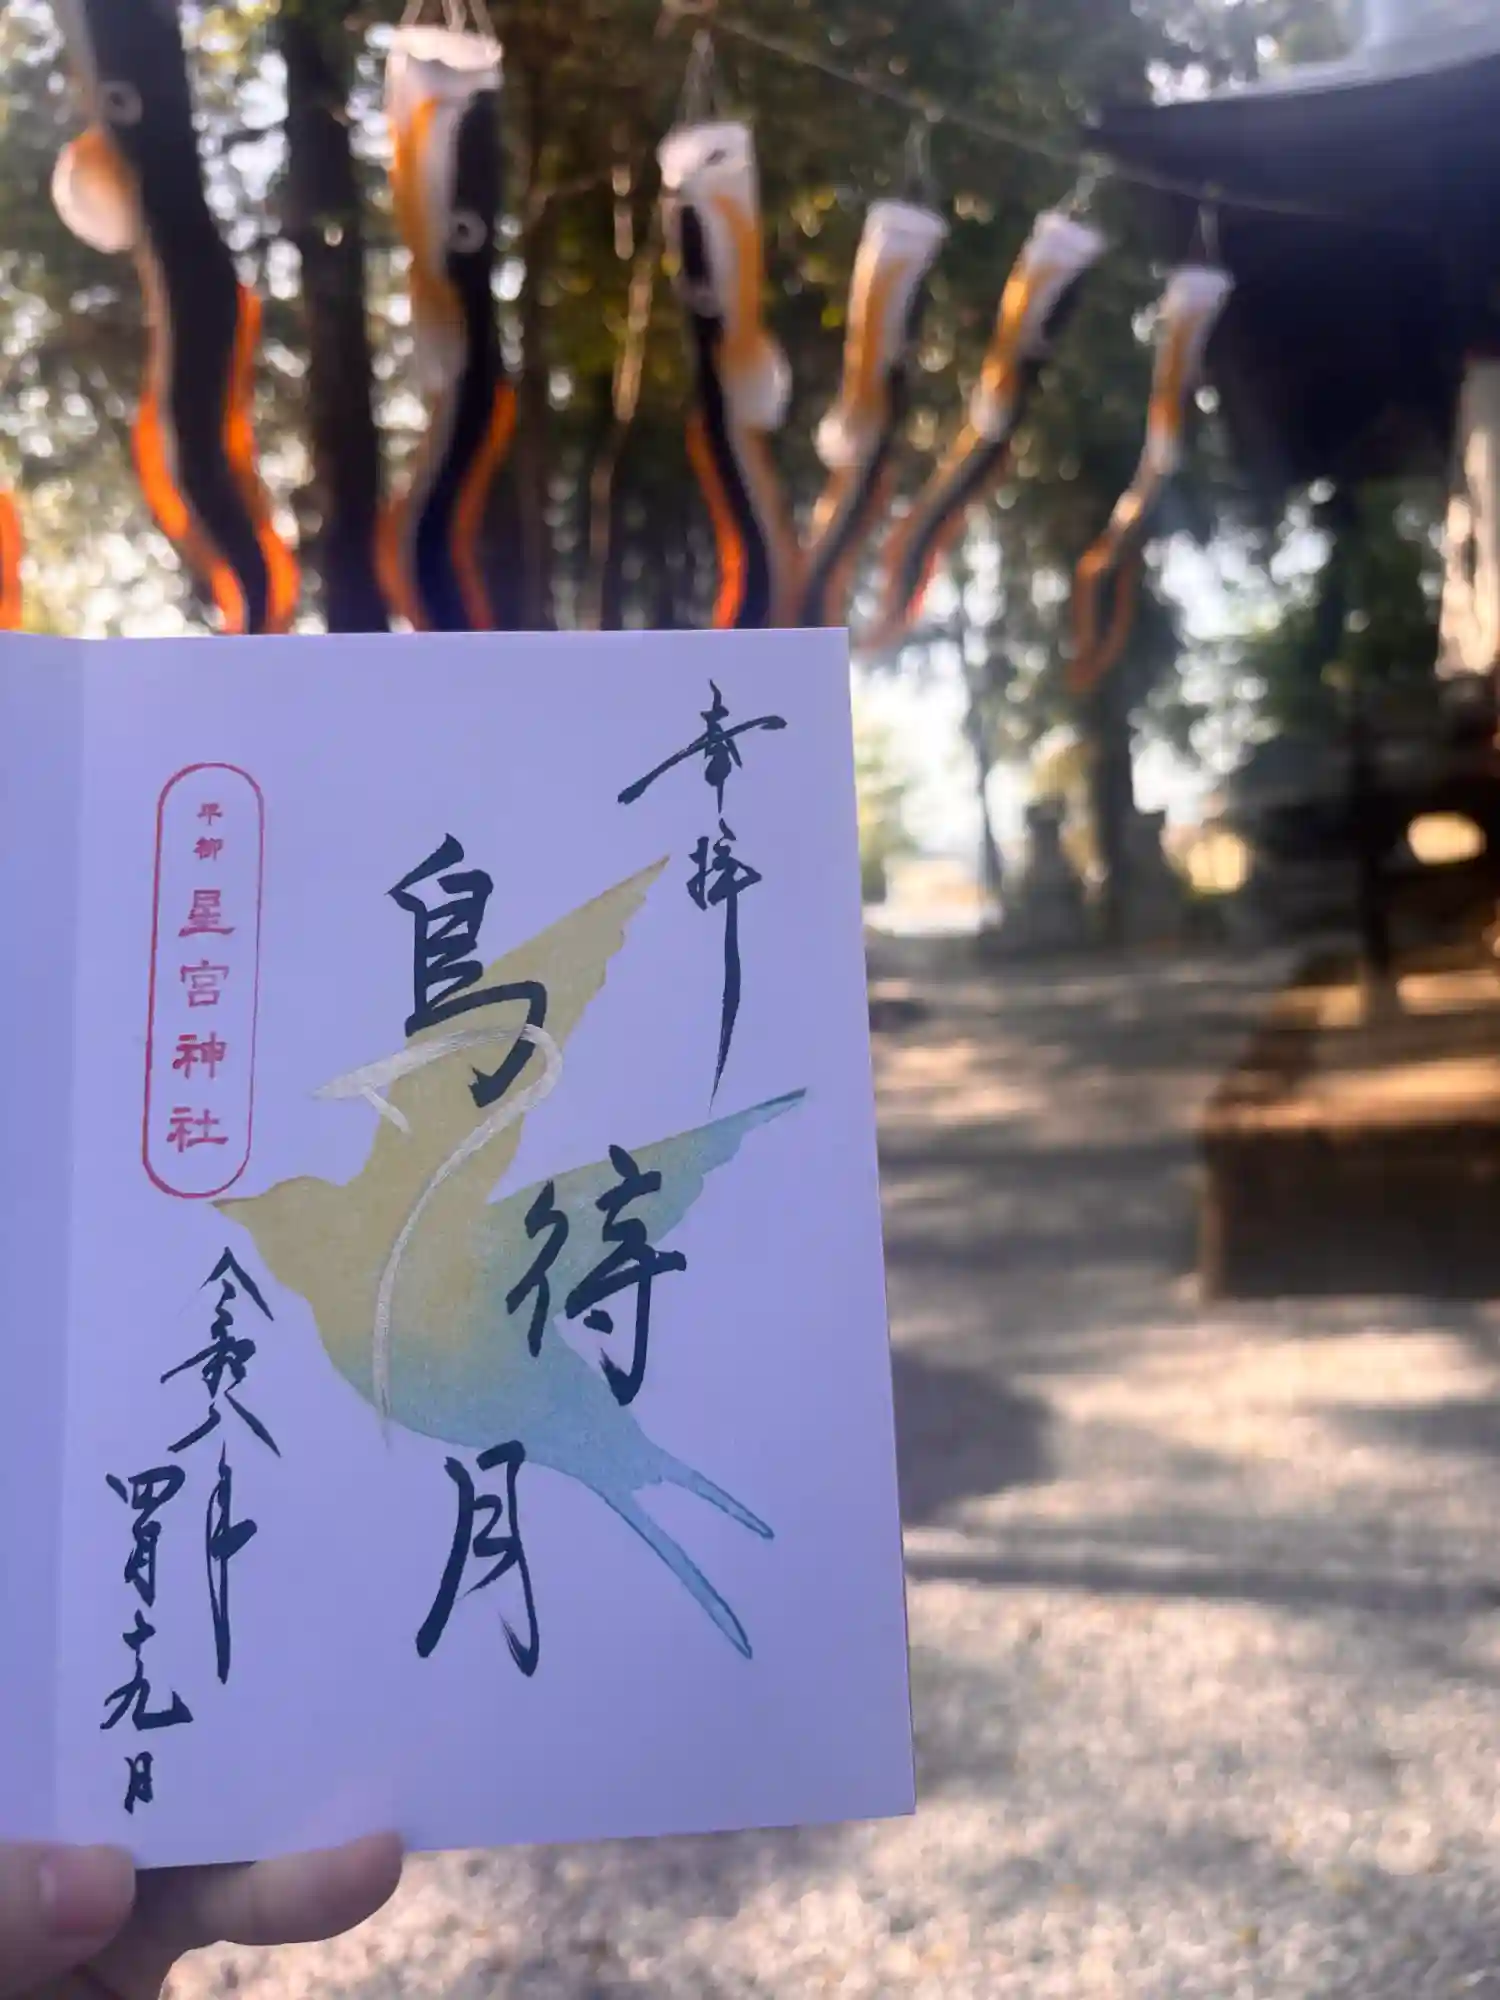 奉拝
鳥待月
平柳 星宮神社
令和八年
四月十九日